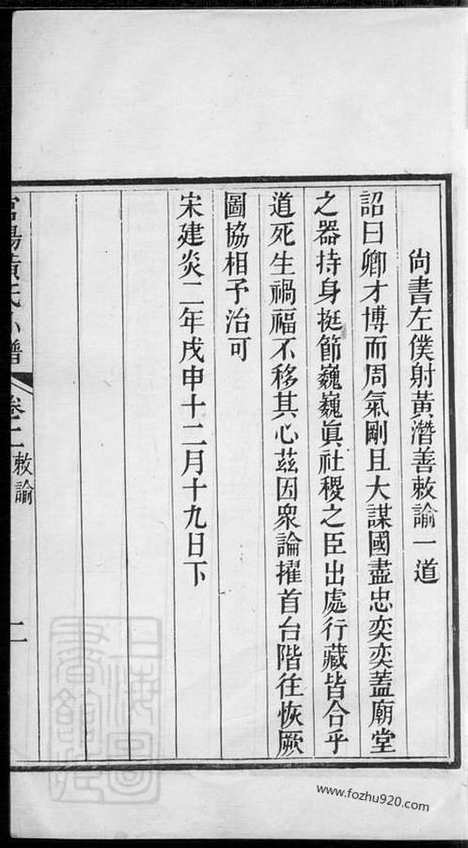 尙書左僕射黃潛善敕諭一道
詔曰卿才博而周氣剛且大謀國盡忠奕奕葢廟堂
之器持身挺節巍巍眞社稷之臣出處行藏皆合乎
道死生禍福不移其心茲因衆論擢首台階往恢厥
圖協相予治可
宋建炎二年戊申十二月十九日下
卷二 敕諭
二
上海圖書館藏
www.fozhu920.com